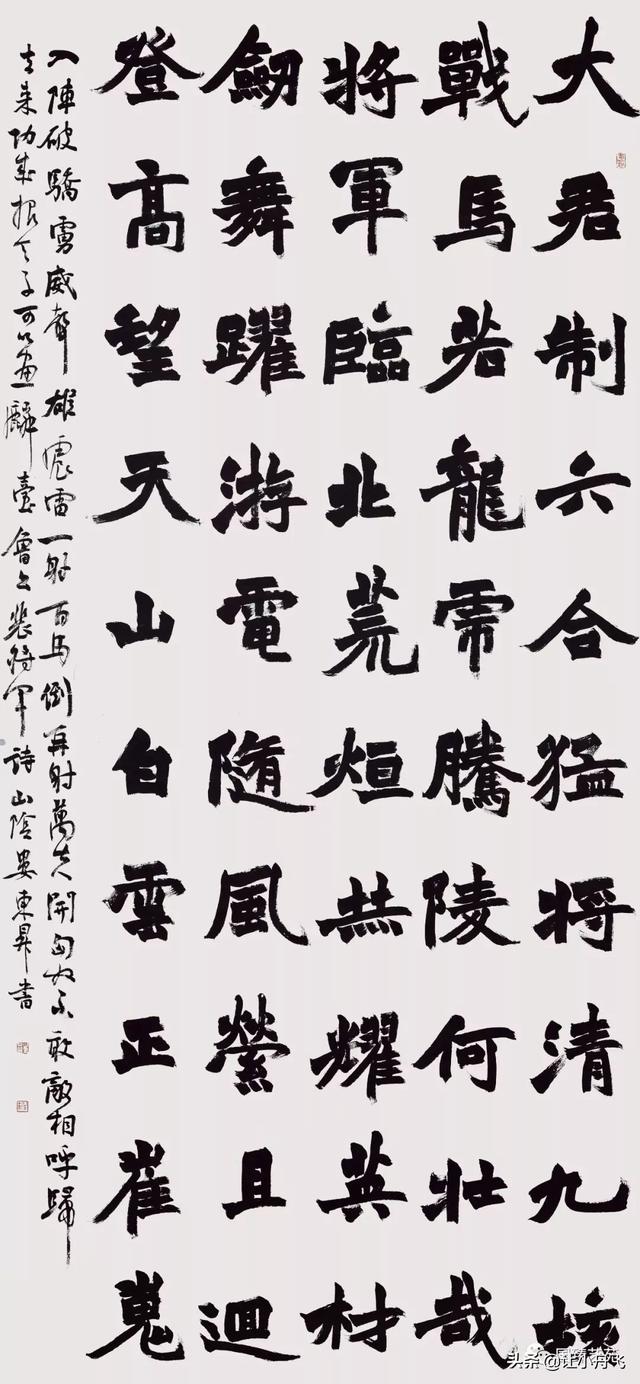 大君制六合猛将清九垓
戰馬若龍虎騰陵何壯哉
将軍臨北荒烜赫耀英材
劒舞躍游電隨風縈且迴
登高望天山白雲正崔嵬
入陣破驕虜威聲雄震雷一射百馬倒再射萬夫開匈奴不敢敵相呼歸
去来功成報天子可以画麟臺魯公裴将軍詩山陰婁東昇書
头条@让小丹飞